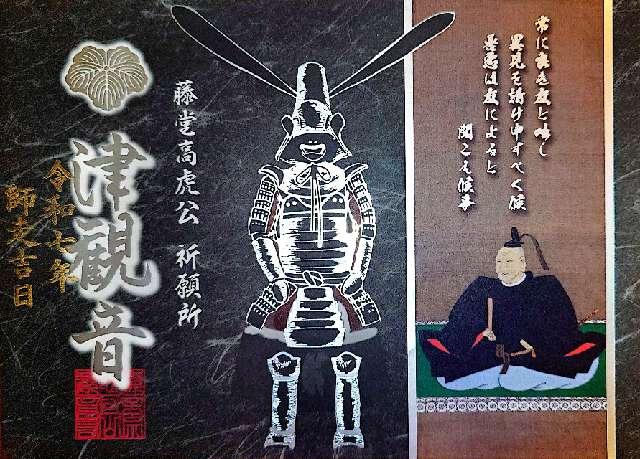 常に良き友と咄し
異見を請け申すべく候
善悪は友によると
聞こえ候事
藤堂高虎公 祈願所
津観音
令和七年
師走吉日